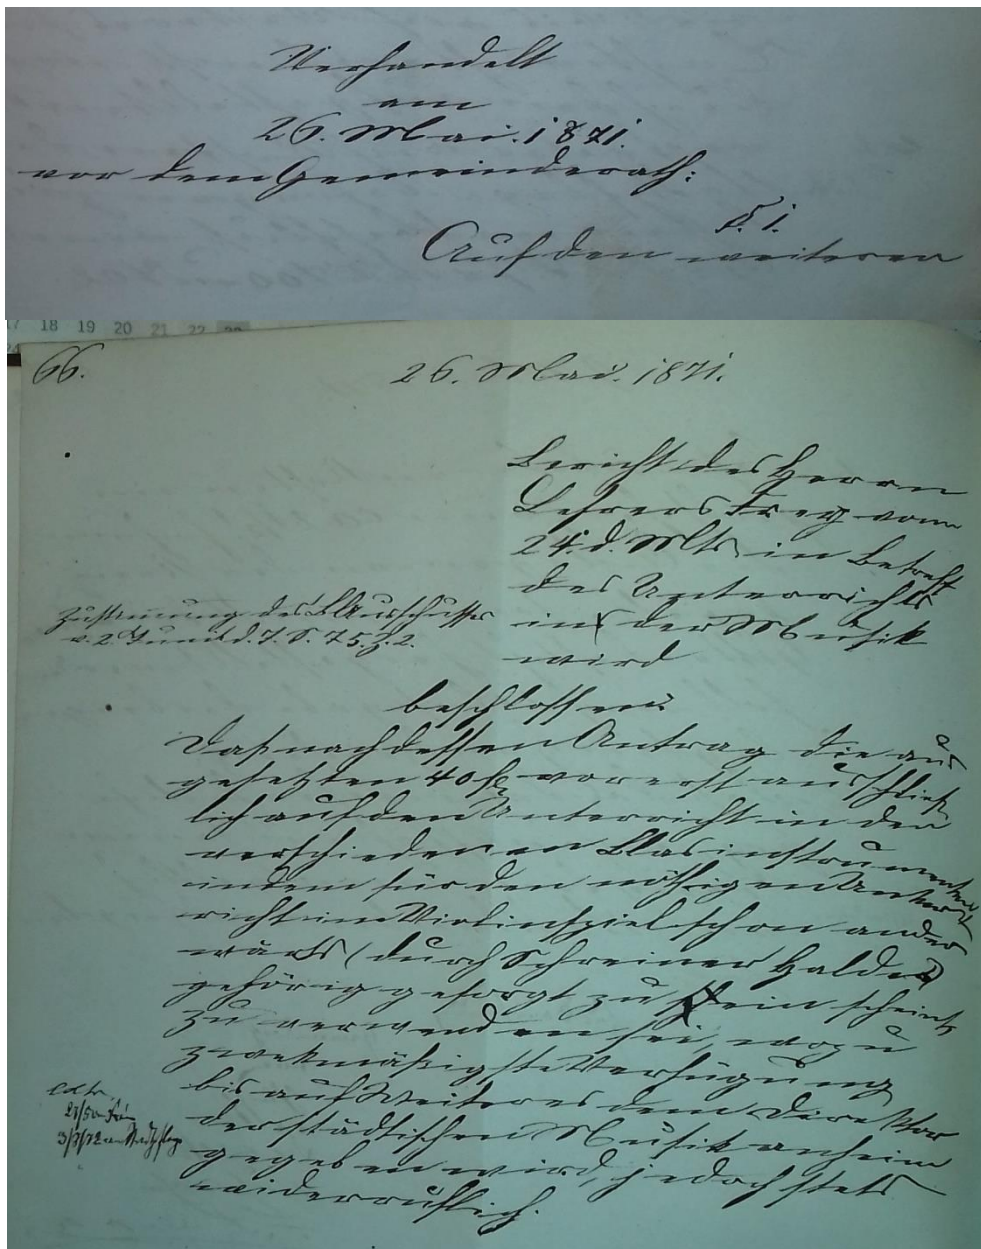 Verhandelt
am
26. Mai. 1871.
vor dem Gemeinderath:
§. 1.
Auf den weiteren
17 18 19 20 21 22 23
24
66.
26. Mai. 1871.
Bericht des Herrn
Lehrers Frey vom
24. d. Mts. in Betreff
des Unterrichts
in der Musik
wird
Zustimmung des B. Ausschusses
v. 2. Juni d. J. S. 75. Z. 2.
beschlossen:
Daß nach dessen Antrag die aus
gesetzten 40 f. vorerst ausschließ
lich auf den Unterricht in den
verschiedenen Blasinstrumenten
indem für den nöthigen Unter
richt im Violinspiel schon ander
wärts (durch Schreiner Halder)
gehörig gesorgt zu sein scheint
zu verwenden sei, wozu
zwekmäßigste Verfügung
bis auf Weiteres dem Direktor
der städtischen Musik anheim
gegeben wird, jedoch stets
widerruflich.
extr.